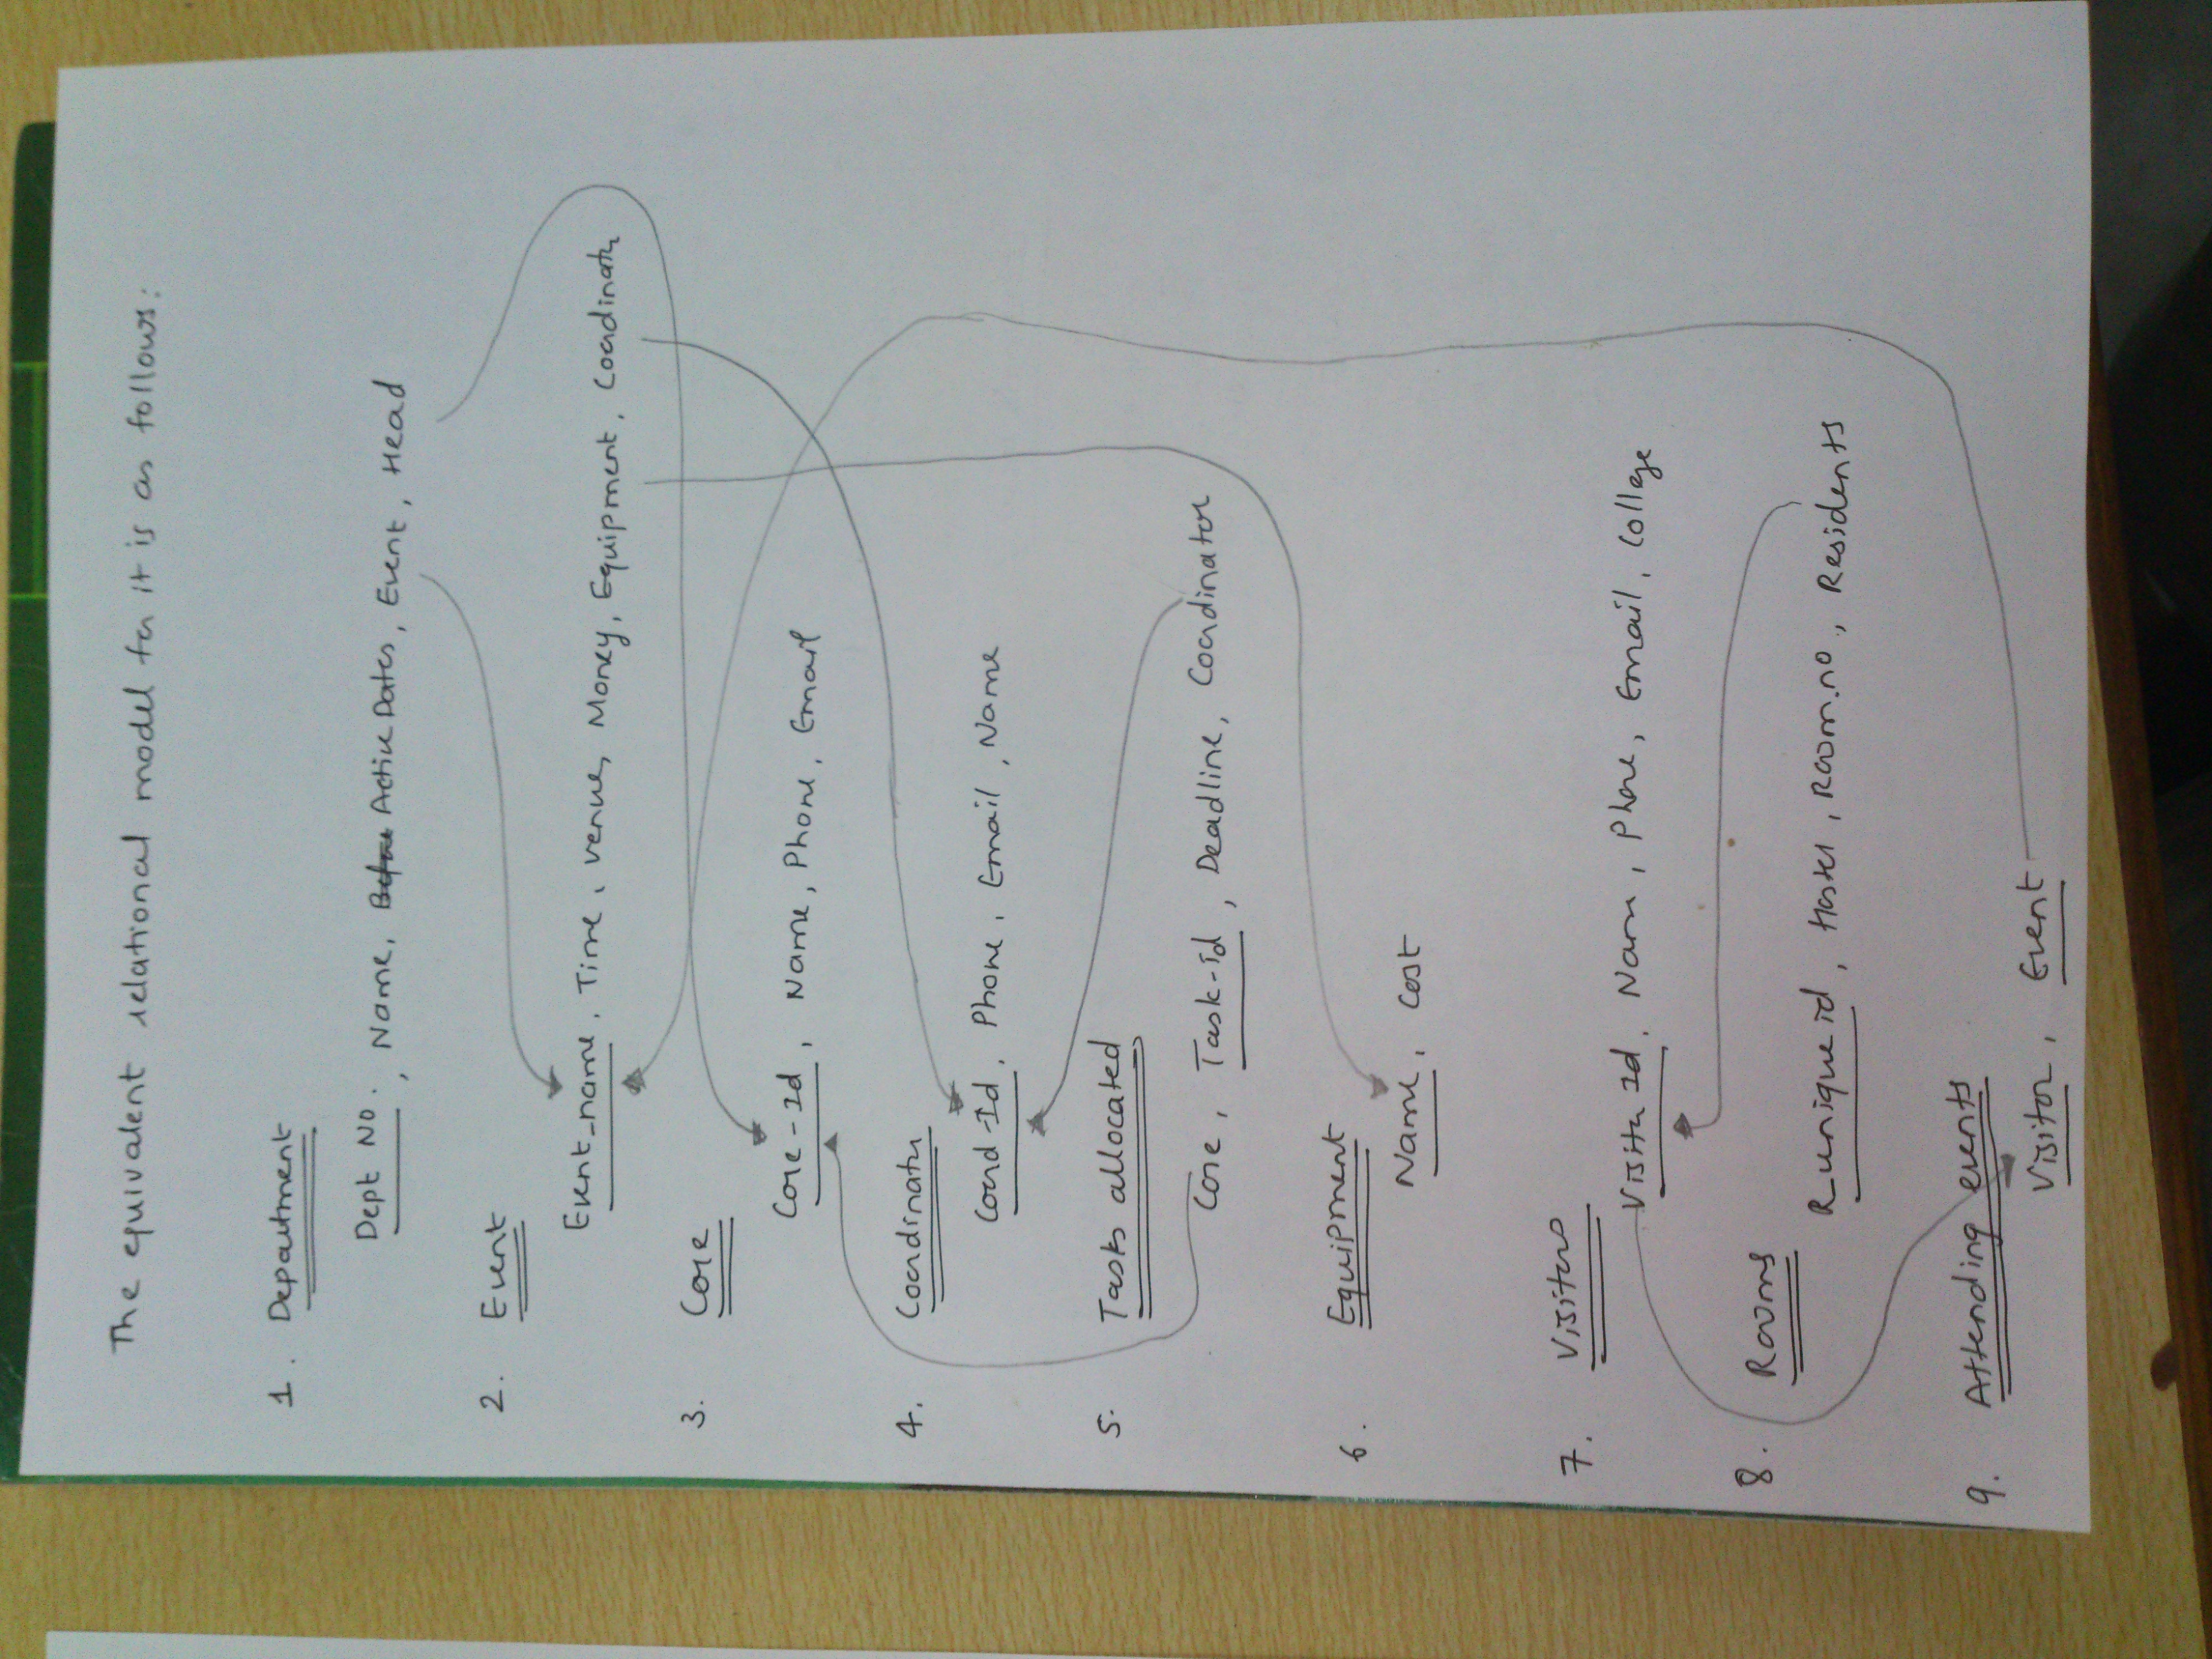 The equivalent relational model for it is as follows:
1. Department
Dept No., Name, Before Active Dates, Event, Head
2. Event
Event_name, Time, venue, Money, Equipment, Coordinator
3. Core
Core-Id, Name, Phone, Email
4. Coordinator
Coord-Id, Phone, Email, Name
5. Tasks allocated
Core, Task-id, Deadline, Coordinator
6. Equipment
Name, Cost
7. Visitors
Visitor Id, Name, Phone, Email, College
8. Rooms
R unique id, Hostel, Room.no, Residents
9. Attending events
Visitor, Event